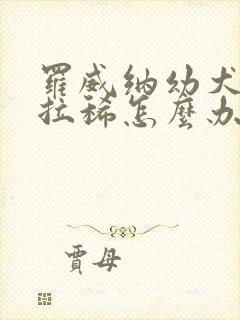 羅威納幼犬
拉稀怎麼办
賈母